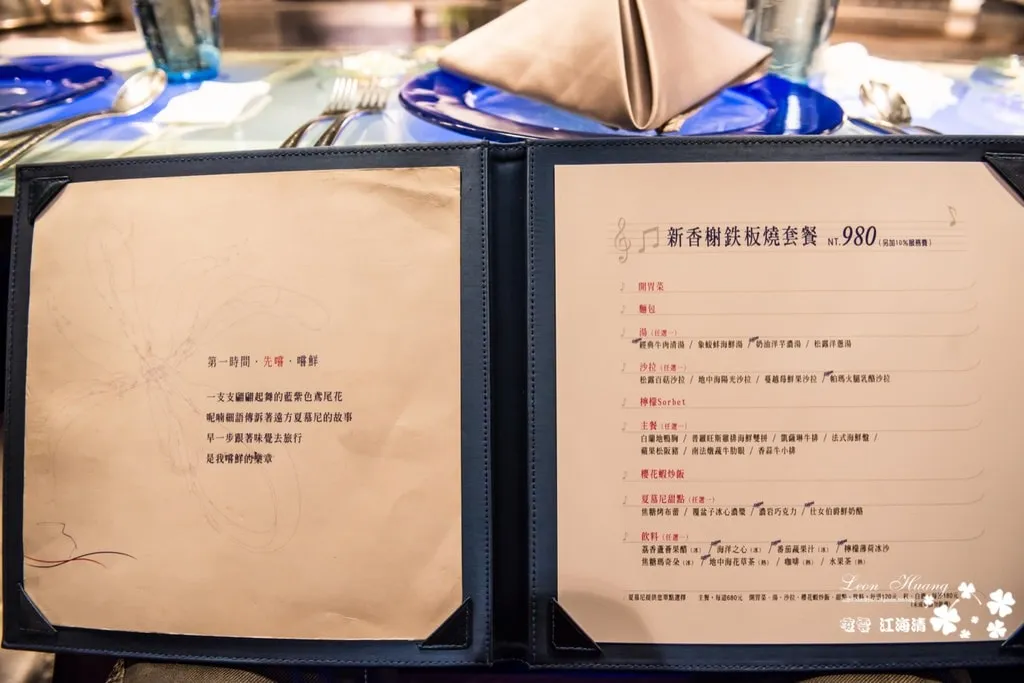 第一時間·先嚐·嚐鮮
一支支翩翩起舞的藍紫色鳶尾花
呢喃細語傳訴著遠方夏慕尼的故事
早一步跟著味覺去旅行
是我嚐鮮的樂章
新香榭鉄板燒套餐 NT.980(另加10%服務費)
開胃菜
麵包
湯(任選一)
經典牛肉清湯 / 象蚊蚌海鮮湯 / 奶油洋芋濃湯 / 松露洋蔥湯
沙拉(任選一)
松露百菇沙拉 / 地中海陽光沙拉 / 蔓越莓鮮果沙拉 / 帕瑪火腿乳酪沙拉
檸檬Sorbet
主餐(任選一)
白蘭地鴨胸 / 普羅旺斯雞排海鮮雙拼 / 凱薩琳牛排 / 法式海鮮盤 /
蘋果松阪豬 / 南法燉蔬牛肋眼 / 香蒜牛小排
櫻花蝦炒飯
夏慕尼甜點(任選一)
焦糖烤布蕾 / 覆盆子冰心濃漿 / 濃岩巧克力 / 仕女伯爵鮮奶酪
飲料(任選一)
荔香蘆薈果醋(冰) / 海洋之心(冰) / 番茄蔬果汁(冰) / 檸檬薄荷冰沙
焦糖瑪奇朵(冰) / 地中海花草茶(熱) / 咖啡(熱) / 水果茶(熱)
夏慕尼提供您單點選擇 主餐,每道680元 開胃菜、湯、沙拉、櫻花蝦炒飯、甜點、飲料,每道120元
Leon Huang
江海清